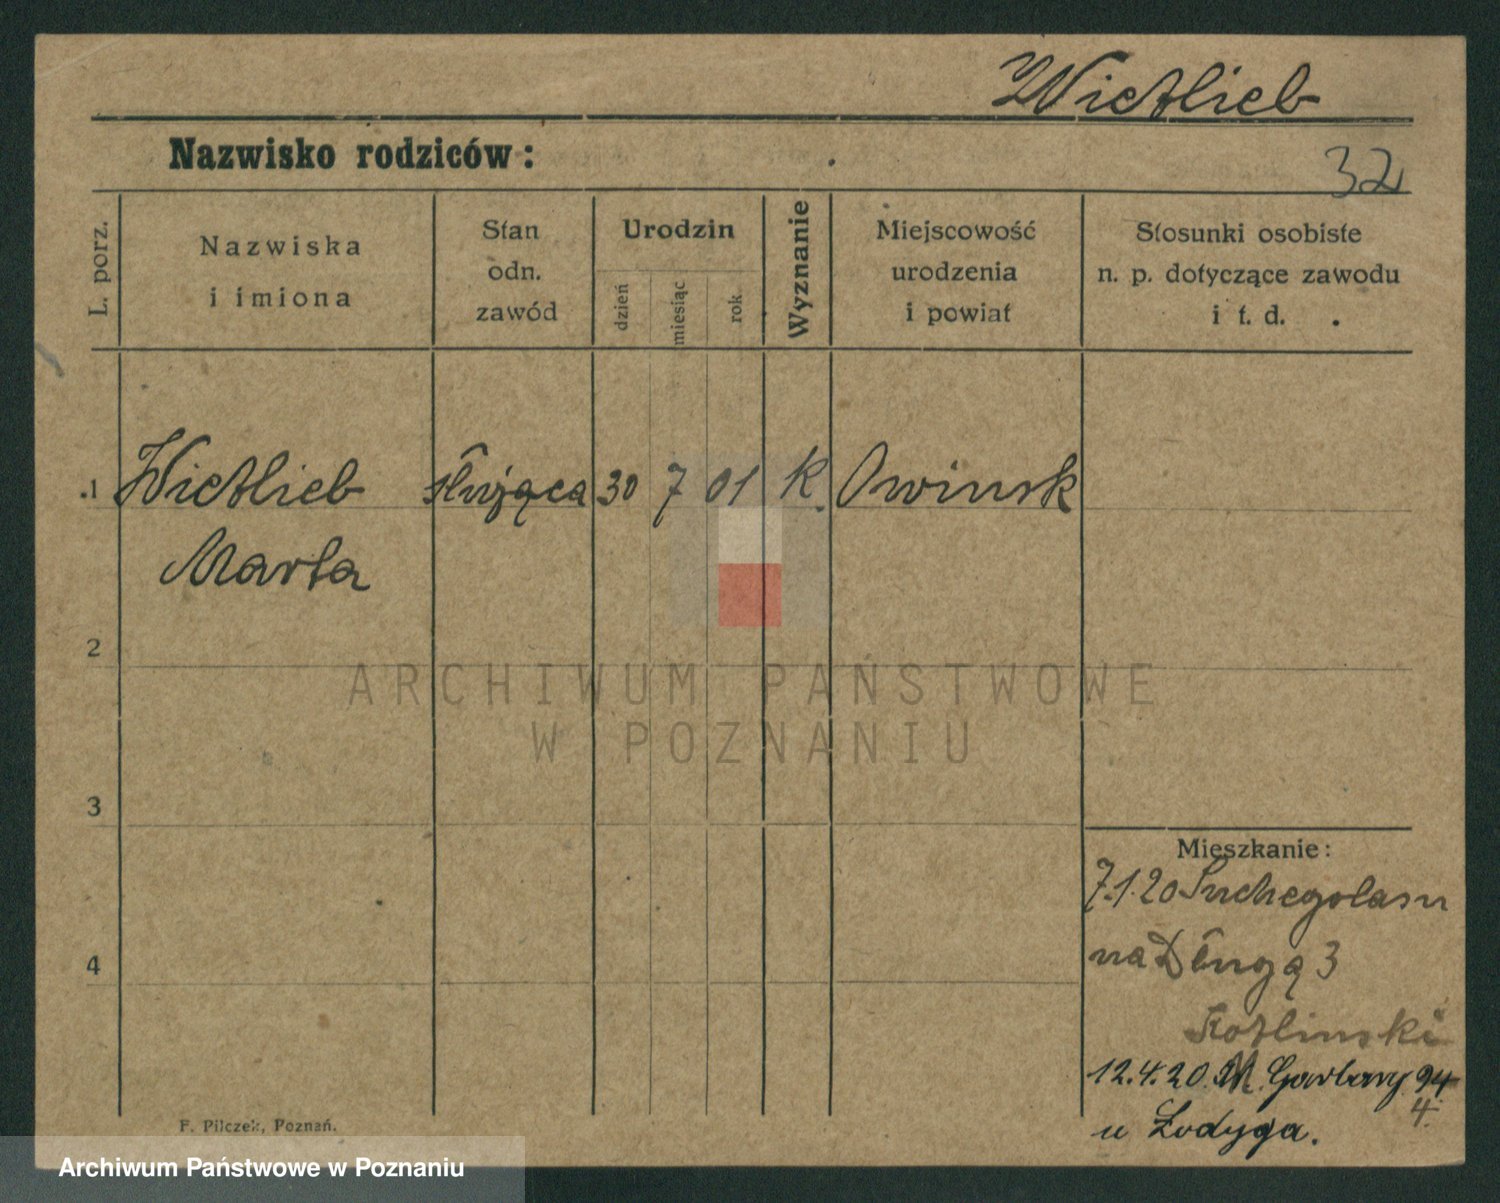 Wietlieb
Nazwisko rodziców:
32
L. porz.
Nazwiska
i imiona
Stan
odn.
zawód
Urodzin
dzień
miesiąc
rok
Wyznanie
Miejscowość
urodzenia
i powiat
Stosunki osobiste
n. p. dotyczące zawodu
i t. d.
1 Wietlieb służąca 30 7 01 K. Owinsk
Marta
2
3
4
Mieszkanie:
7.1.20 Suchegolasu
na Długą 3
Kotlinski
12.4.20. M. Garbary 94
4.
u Łodyga.
F. Pilczek, Poznań.
ARCHIWUM PAŃSTWOWE
W POZNANIU
Archiwum Państwowe w Poznaniu